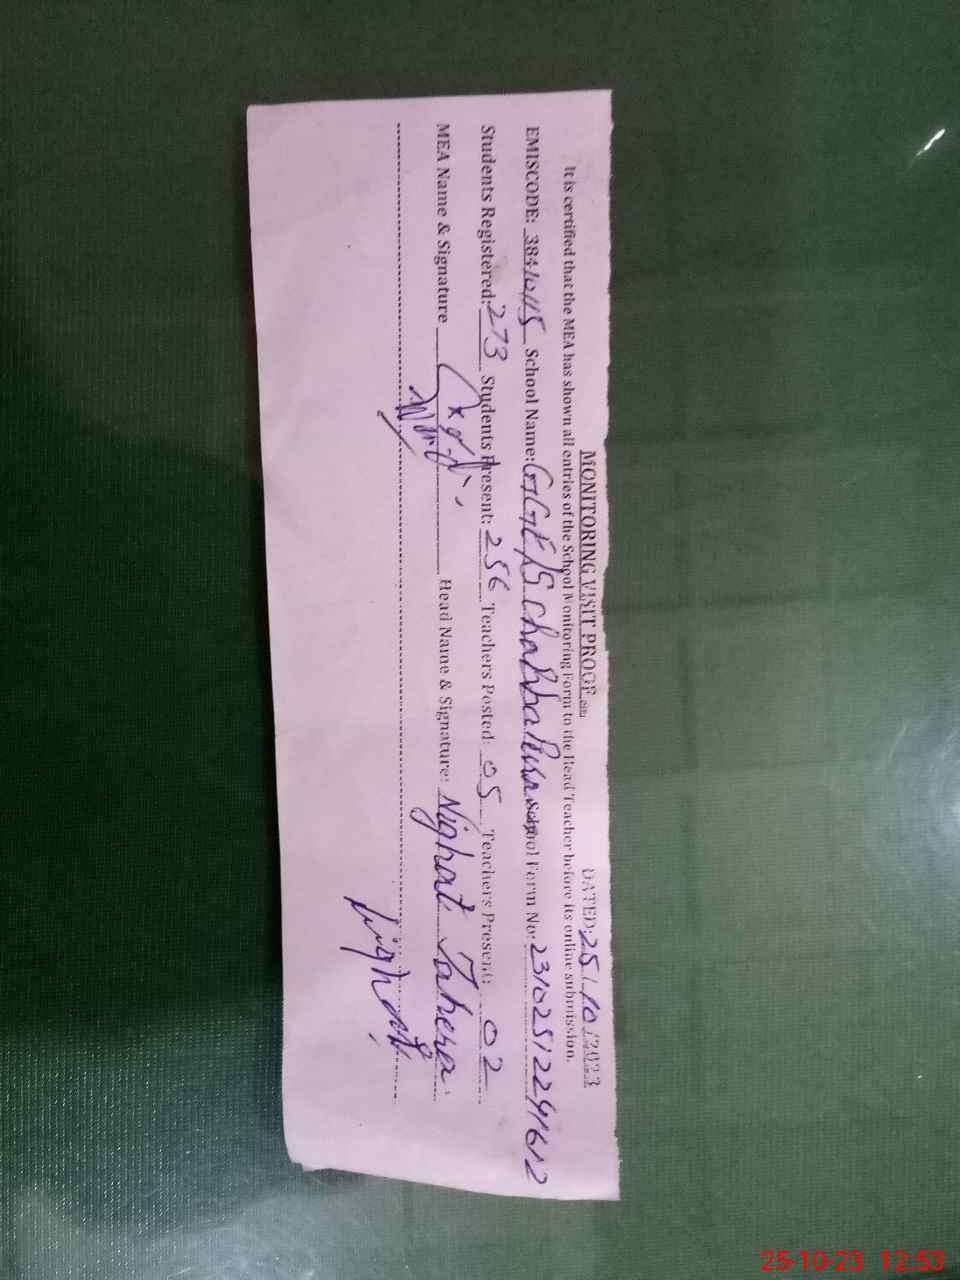 MONITORING VISIT PROOF DATED: 25/10/2023
It is certified that the MEA has shown all entries of the School Monitoring Form to the Head Teacher before its online submission.
EMISCODE: 38410115 School Name: GGE/S School Form No: 231025122941612
Students Registered: 273 Students Present: 256 Teachers Posted: 05 Teachers Present: 02
MEA Name & Signature Head Name & Signature: Nighat Tahera.
Nighat
25-10-23 12:53